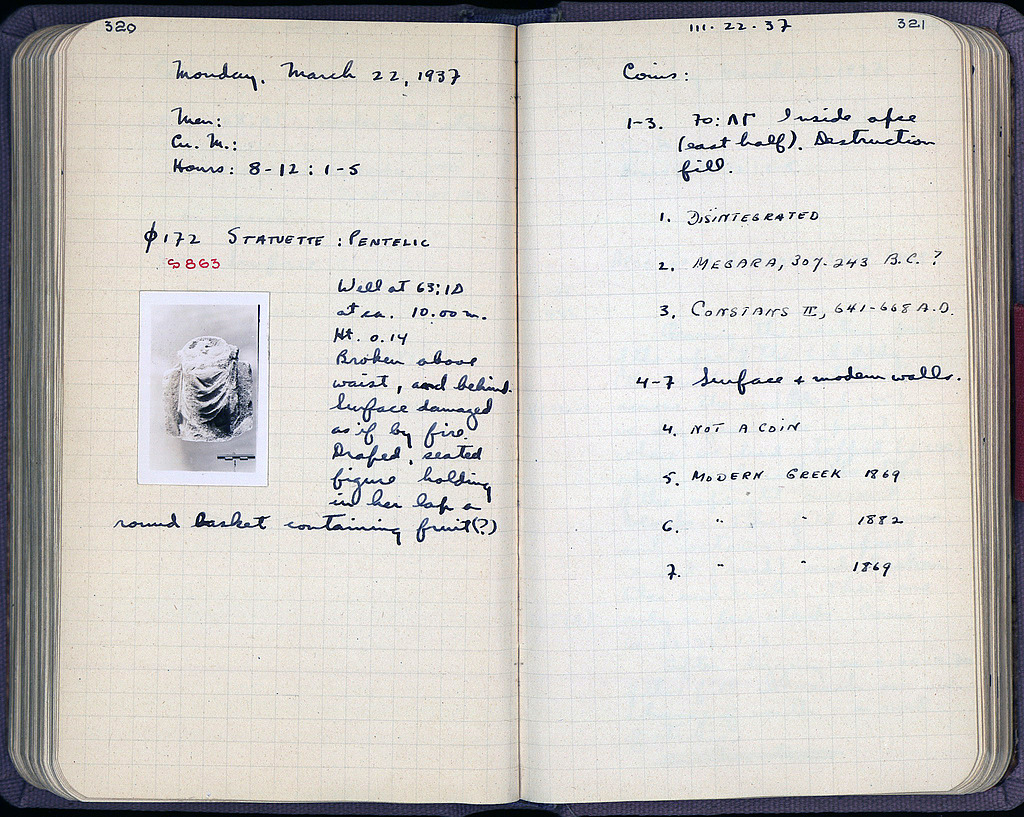 320
Monday, March 22, 1937
Men:
Cu. M.:
Hours: 8-12 : 1-5
φ172 STATUETTE : PENTELIC
S 863
Well at 63:ΙΔ
at ca. 10.00 m.
Ht. 0.14
Broken above
waist, and behind.
Surface damaged
as if by fire.
Draped, seated
figure holding
in her lap a
round basket containing fruit(?)
III. 22. 37
321
Coins:
1-3. 70:ΛΓ Inside apse
(east half). Destruction
fill.
1. DISINTEGRATED
2. MEGARA, 307-243 B.C. ?
3. CONSTANS II, 641-668 A.D.
4-7 Surface + modern walls.
4. NOT A COIN
5. MODERN GREEK 1869
6. " " 1882
7. " " 1869